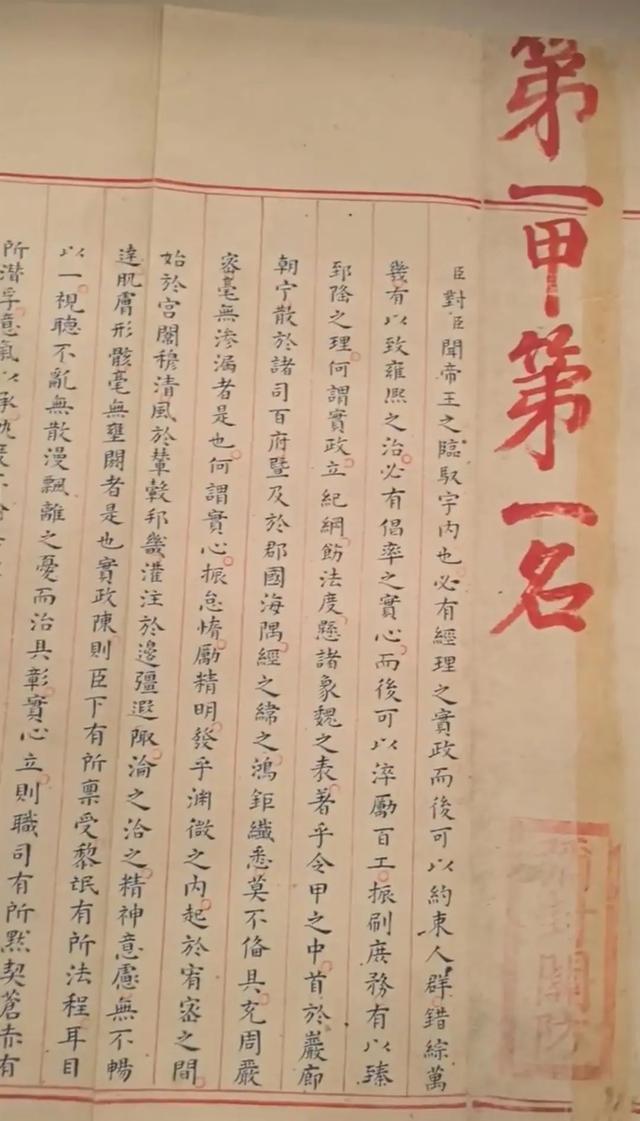 第一甲第一名
彌封關防
臣對臣聞帝王之臨馭宇內也必有經理之實政而後可以約束人群錯綜萬
幾有以致雍熙之治必有倡率之實心而後可以淬厲百工振刷庶務有以臻
郅隆之理何謂實政立紀綱飭法度懸諸象魏之表著乎令甲之中首於巖廊
朝宁散於諸司百府暨及於郡國海隅經之緯之鴻鉅纖悉莫不備具充周嚴
密毫無滲漏者是也何謂實心振怠惰勵精明發乎淵微之內起於宥密之間
始於宮闈穆清風於輦轂邦畿灌注於邊疆遐陬淪之洽之精神意慮無不暢
達肌膚形骸毫無壅閼者是也實政陳則臣下有所禀受黎氓有所法程耳目
以一視聽不亂無散漫飄離之憂而治具彰實心立則職司有所默契蒼赤有
所潛孚意氣以承